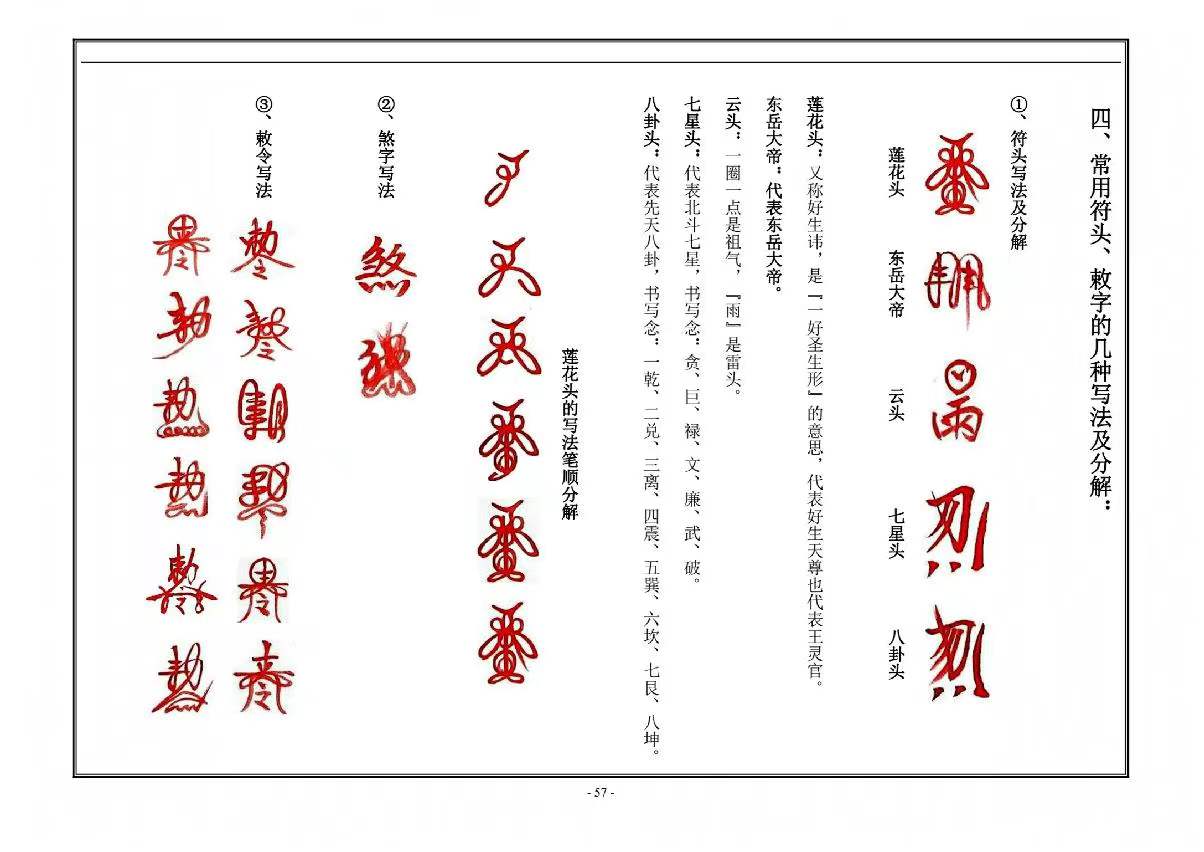 四、常用符头、敕字的几种写法及分解：
①、符头写法及分解
莲花头
东岳大帝
云头
七星头
八卦头
莲花头：又称好生讳，是『一好圣生形』的意思，代表好生天尊也代表王灵官。
东岳大帝：代表东岳大帝。
云头：一圈一点是祖气，『雨』是雷头。
七星头：代表北斗七星，书写念：贪、巨、禄、文、廉、武、破。
八卦头：代表先天八卦，书写念：一乾、二兑、三离、四震、五巽、六坎、七艮、八坤。
莲花头的写法笔顺分解
②、煞字写法
煞
③、敕令写法
- 57 -